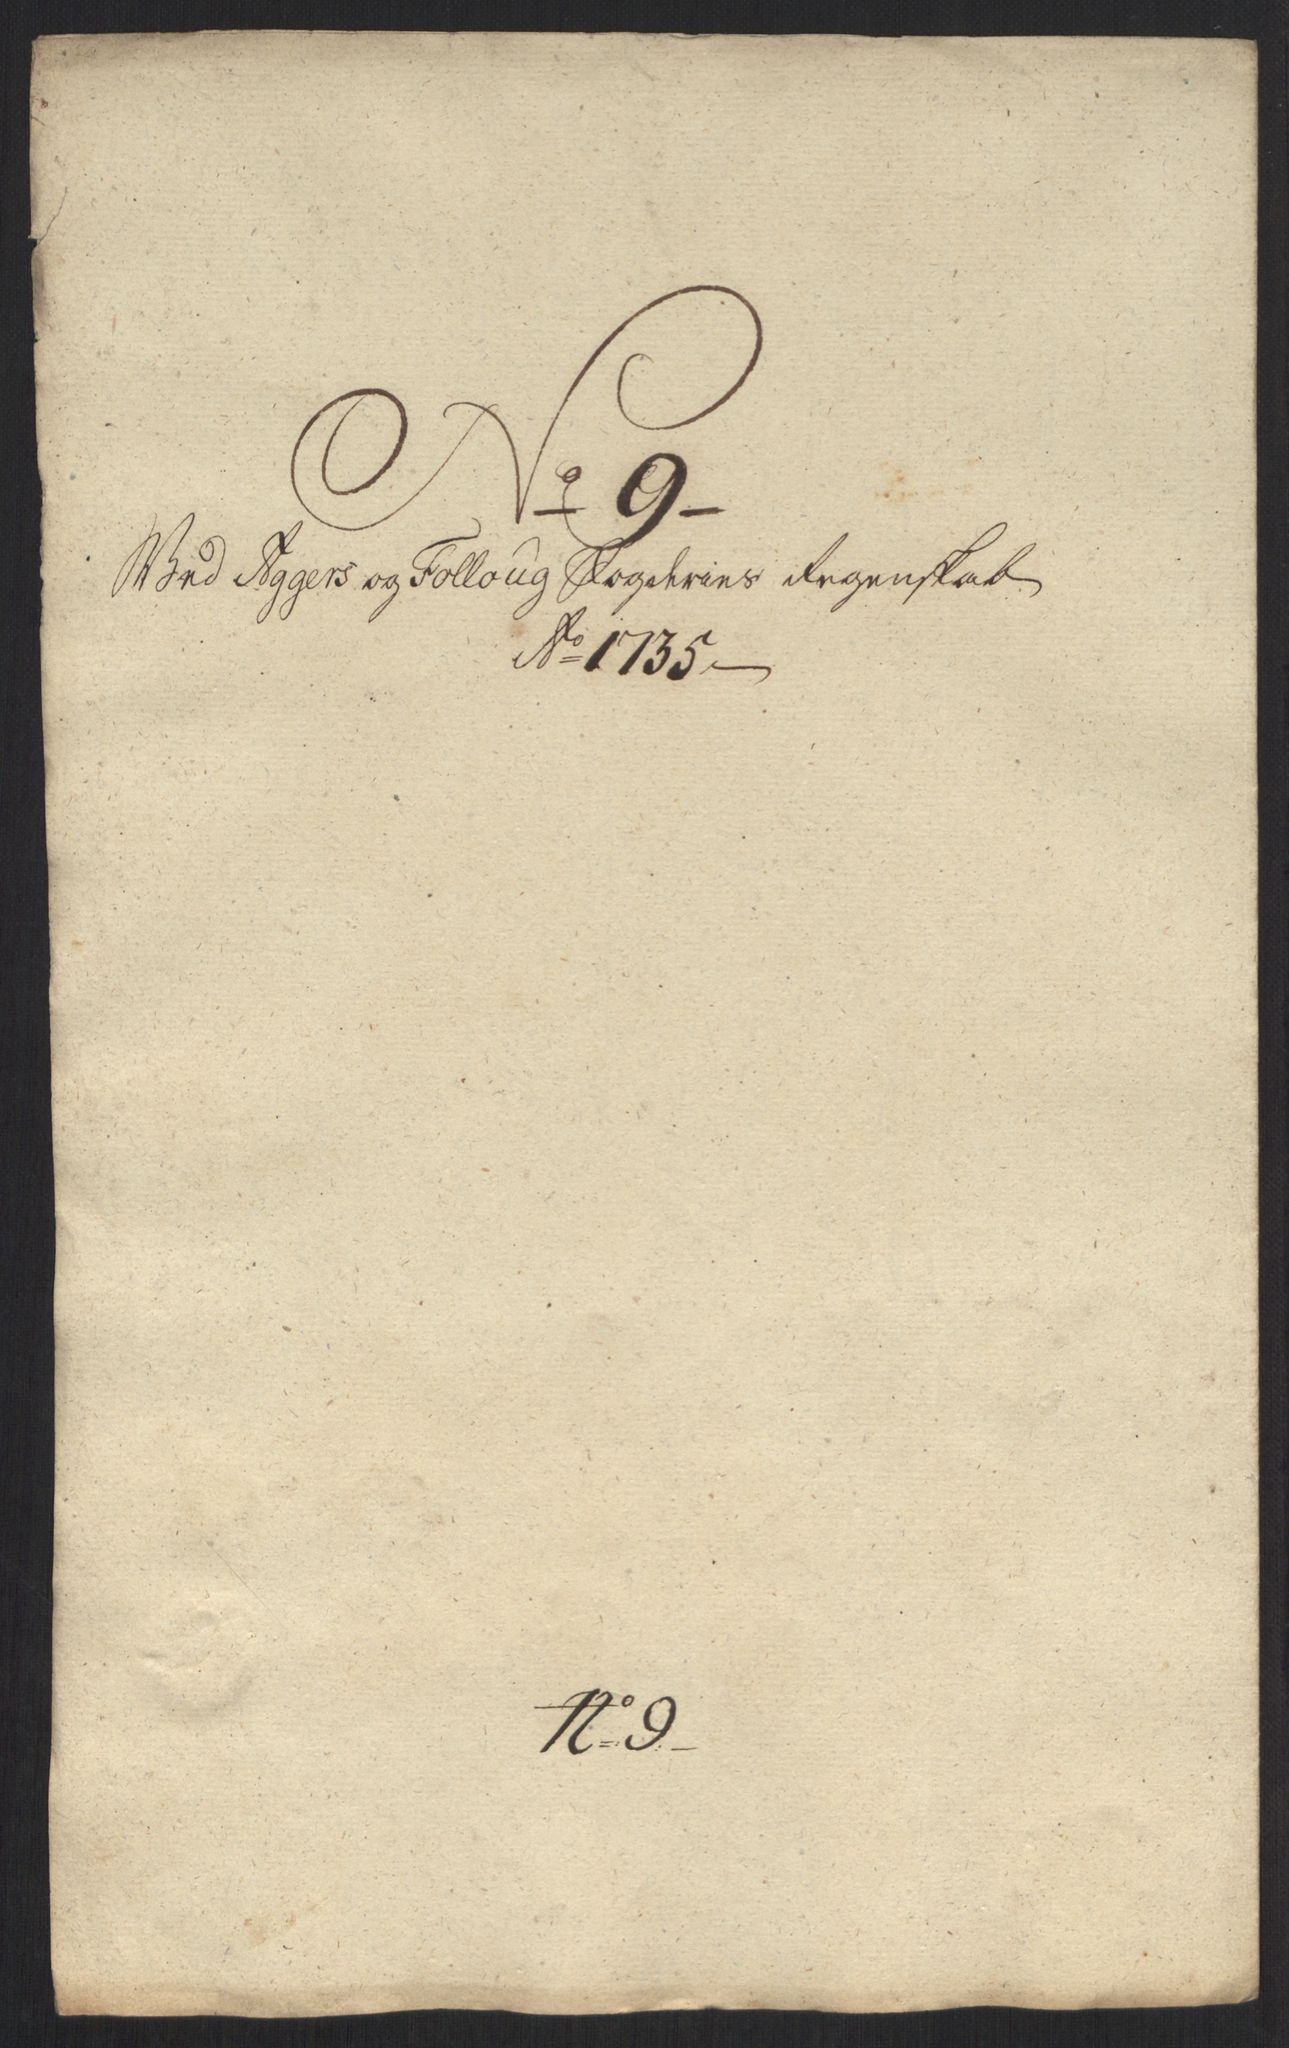 No 9
Ved Aggers og Folloug Fogderies Regenskab
Ao 1735
No 9